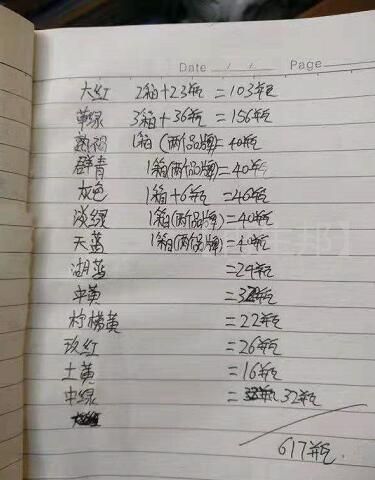 Date / / Page
大红 2箱+23瓶 =103瓶
草绿 3箱+36瓶 =156瓶
熟褐 1箱(两品牌)=40瓶
群青 1箱(两品牌)=40瓶
灰色 1箱+6瓶=46瓶
淡绿 1箱(两品牌)=40瓶
天蓝 1箱(两品牌)=40瓶
湖蓝 =24瓶
中黄 =32瓶
柠檬黄 =22瓶
玫红 =26瓶
土黄 =16瓶
中绿 = 32瓶
617瓶